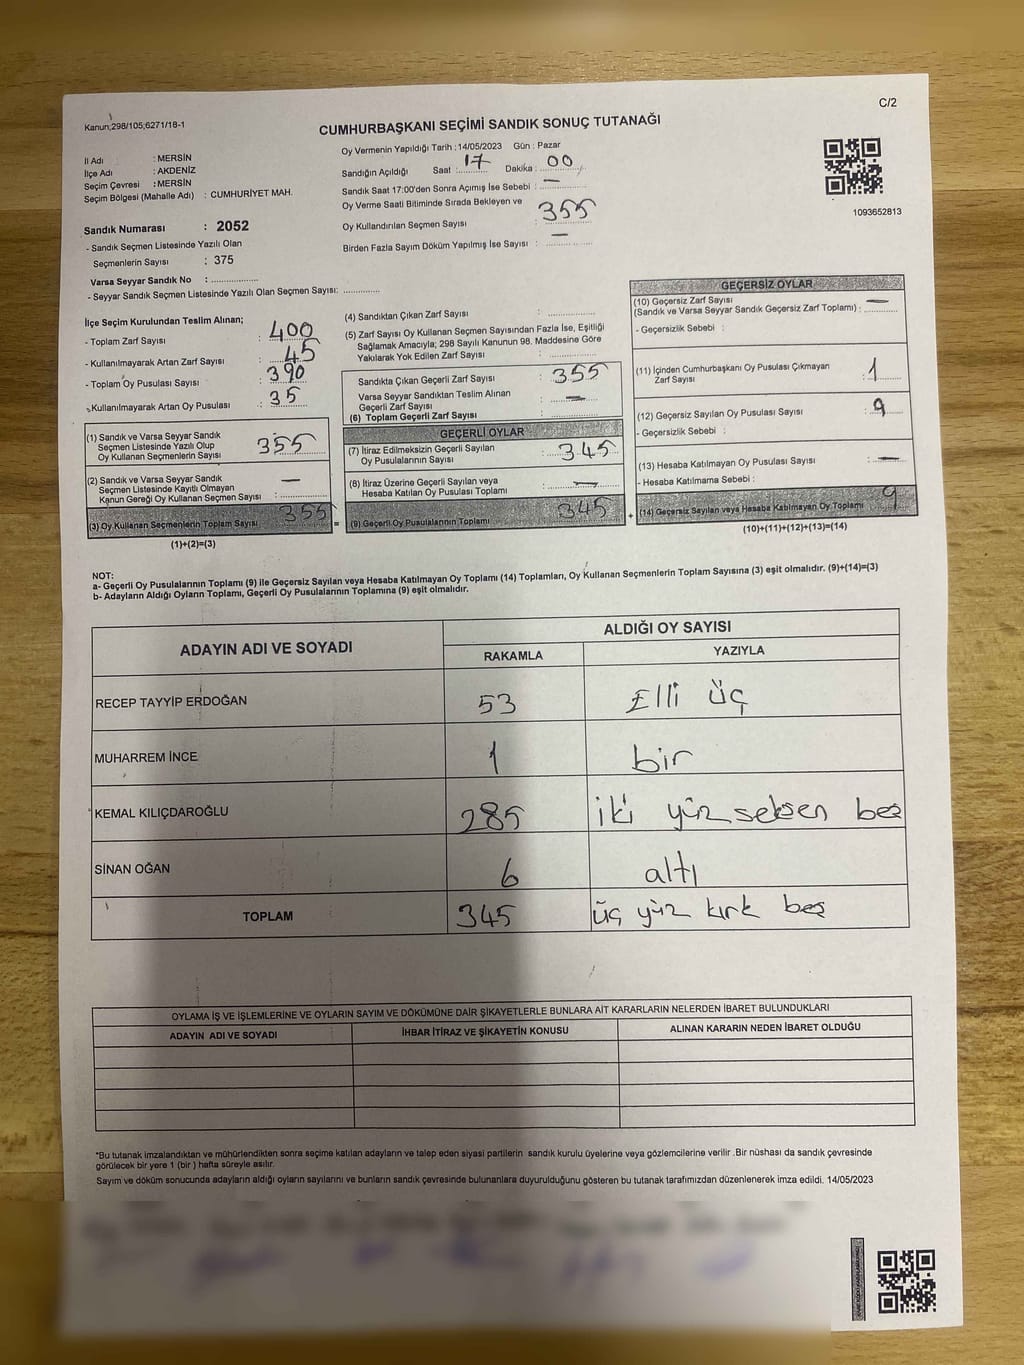 C/2
Kanun;298/105;6271/18-1
CUMHURBAŞKANI SEÇİMİ SANDIK SONUÇ TUTANAĞI
İl Adı : MERSİN
İlçe Adı : AKDENİZ
Seçim Çevresi : MERSİN
Seçim Bölgesi (Mahalle Adı) : CUMHURİYET MAH.
Sandık Numarası : 2052
- Sandık Seçmen Listesinde Yazılı Olan
Seçmenlerin Sayısı : 375
Varsa Seyyar Sandık No : ..............
- Seyyar Sandık Seçmen Listesinde Yazılı Olan Seçmen Sayısı: ............
Oy Vermenin Yapıldığı Tarih :14/05/2023 Gün : Pazar
Sandığın Açıldığı Saat : 17 Dakika : 00
Sandık Saat 17:00'den Sonra Açımış İse Sebebi : —
Oy Verme Saati Bitiminde Sırada Bekleyen ve
Oy Kullandırılan Seçmen Sayısı : 355
Birden Fazla Sayım Döküm Yapılmış İse Sayısı : —
1093652813
İlçe Seçim Kurulundan Teslim Alınan;
- Toplam Zarf Sayısı : 400
- Kullanılmayarak Artan Zarf Sayısı : 45
- Toplam Oy Pusulası Sayısı : 390
- Kullanılmayarak Artan Oy Pusulası : 35
(1) Sandık ve Varsa Seyyar Sandık
Seçmen Listesinde Yazılı Olup
Oy Kullanan Seçmenlerin Sayısı : 355
(2) Sandık ve Varsa Seyyar Sandık
Seçmen Listesinde Kayıtlı Olmayan
Kanun Gereği Oy Kullanan Seçmen Sayısı : —
(3) Oy Kullanan Seçmenlerin Toplam Sayısı 355
(1)+(2)=(3)
=
(4) Sandıktan Çıkan Zarf Sayısı : ............
(5) Zarf Sayısı Oy Kullanan Seçmen Sayısından Fazla İse, Eşitliği
Sağlamak Amacıyla; 298 Sayılı Kanunun 98. Maddesine Göre
Yakılarak Yok Edilen Zarf Sayısı : ............
Sandıkta Çıkan Geçerli Zarf Sayısı : 355
Varsa Seyyar Sandıktan Teslim Alınan
Geçerli Zarf Sayısı : —
(6) Toplam Geçerli Zarf Sayısı : ............
GEÇERLİ OYLAR
(7) İtiraz Edilmeksizin Geçerli Sayılan
Oy Pusulalarının Sayısı : 345
(8) İtiraz Üzerine Geçerli Sayılan veya
Hesaba Katılan Oy Pusulası Toplamı : —
(9) Geçerli Oy Pusulalarının Toplamı 345
+
GEÇERSİZ OYLAR
(10) Geçersiz Zarf Sayısı
(Sandık ve Varsa Seyyar Sandık Geçersiz Zarf Toplamı) : —
- Geçersizlik Sebebi :
(11) İçinden Cumhurbaşkanı Oy Pusulası Çıkmayan
Zarf Sayısı : 1
(12) Geçersiz Sayılan Oy Pusulası Sayısı : 9
- Geçersizlik Sebebi :
(13) Hesaba Katılmayan Oy Pusulası Sayısı : —
- Hesaba Katılmama Sebebi :
(14) Geçersiz Sayılan veya Hesaba Katılmayan Oy Toplamı 9
(10)+(11)+(12)+(13)=(14)
NOT:
a- Geçerli Oy Pusulalarının Toplamı (9) ile Geçersiz Sayılan veya Hesaba Katılmayan Oy Toplamı (14) Toplamları, Oy Kullanan Seçmenlerin Toplam Sayısına (3) eşit olmalıdır. (9)+(14)=(3)
b- Adayların Aldığı Oyların Toplamı, Geçerli Oy Pusulalarının Toplamına (9) eşit olmalıdır.
ADAYIN ADI VE SOYADI ALDIĞI OY SAYISI
RAKAMLA YAZIYLA
RECEP TAYYİP ERDOĞAN 53 Elli üç
MUHARREM İNCE 1 bir
KEMAL KILIÇDAROĞLU 285 iki yüz seksen beş
SİNAN OĞAN 6 altı
TOPLAM 345 üç yüz kırk beş
OYLAMA İŞ VE İŞLEMLERİNE VE OYLARIN SAYIM VE DÖKÜMÜNE DAİR ŞİKAYETLERLE BUNLARA AİT KARARLARIN NELERDEN İBARET BULUNDUKLARI
ADAYIN ADI VE SOYADI İHBAR İTİRAZ VE ŞİKAYETİN KONUSU ALINAN KARARIN NEDEN İBARET OLDUĞU
*Bu tutanak imzalandıktan ve mühürlendikten sonra seçime katılan adayların ve talep eden siyasi partilerin sandık kurulu üyelerine veya gözlemcilerine verilir .Bir nüshası da sandık çevresinde
görülecek bir yere 1 (bir ) hafta süreyle asılır.
Sayım ve döküm sonucunda adayların aldığı oyların sayılarını ve bunların sandık çevresinde bulunanlara duyurulduğunu gösteren bu tutanak tarafımızdan düzenlenerek imza edildi. 14/05/2023